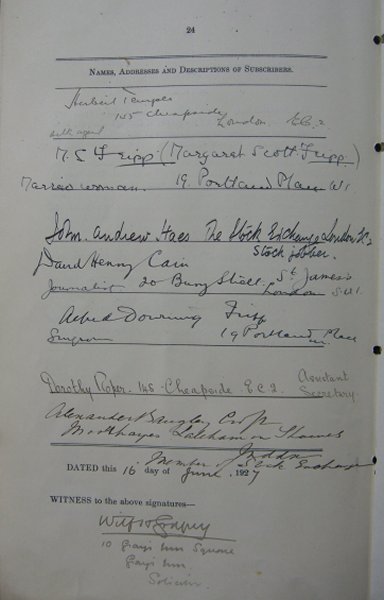 24
NAMES, ADDRESSES AND DESCRIPTIONS OF SUBSCRIBERS.
Herbert Temple
145 Cheapside
London E.C.2
silk agent
M. S. Fripp (Margaret Scott Fripp)
Married woman. 19 Portland Place W1
John Andrew Haes The Stock Exchange London E.C.2
Stock jobber.
David Henry Cain
Journalist 20 Bury Street. St James's
London S.W.1.
Alfred Downing Fripp
Surgeon 19 Portland Place
Dorothy Roper. 145 Cheapside E.C.2. Assistant
Secretary
Alexander Cropp
Laleham on Thames
Member of London
Stock Exchange
DATED this 16 day of June, 1927
WITNESS to the above signatures—
10 Grays Inn Square
Grays Inn
Solicitor.